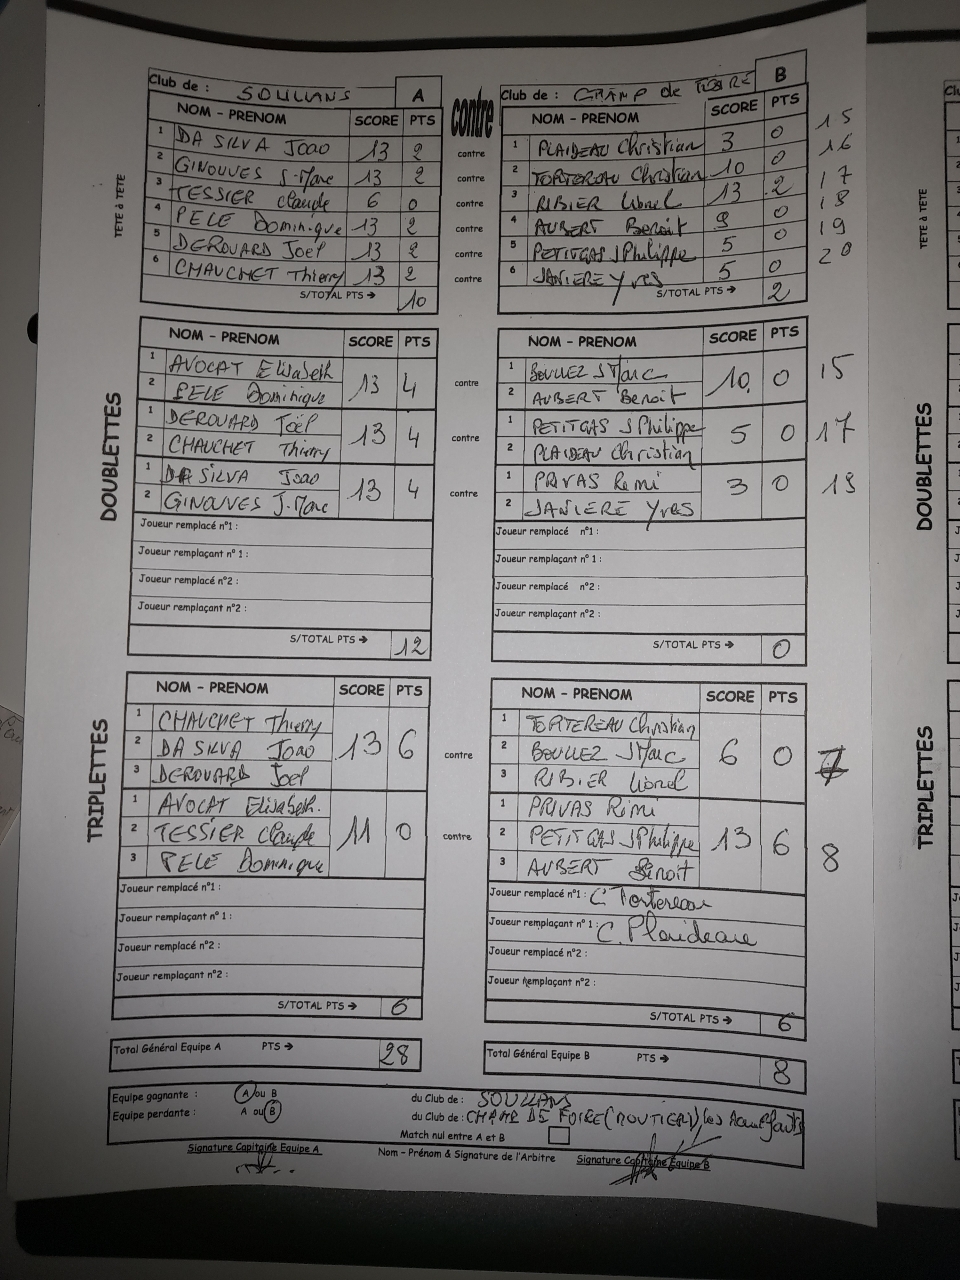 Club de : SOULLANS A
contre
Club de : CHAMP de FOIRE B
TETE à TETE
NOM - PRENOM SCORE PTS
1 DA SILVA Joao 13 2
2 GINOUVES J-Marc 13 2
3 TESSIER Claude 6 0
4 PELE Dominique 13 2
5 DEROUARD Joël 13 2
6 CHAUCHET Thierry 13 2
S/TOTAL PTS → 10
contre
contre
contre
contre
contre
contre
NOM - PRENOM SCORE PTS
1 PLAIDEAU Christian 3 0 15
2 TORTEREAU Christian 10 0 16
3 RIBIER Lionel 13 2 17
4 AUBERT Benoit 9 0 18
5 PETITGAS JPhilippe 5 0 19
6 JANIERE Yves 5 0 20
S/TOTAL PTS → 2
TETE à TETE
DOUBLETTES
NOM - PRENOM SCORE PTS
1 AVOCAT Elisabeth
2 PELE Dominique 13 4
1 DEROUARD Joël
2 CHAUCHET Thierry 13 4
1 DA SILVA Joao
2 GINOUVES J-Marc 13 4
Joueur remplacé n°1 :
Joueur remplaçant n° 1 :
Joueur remplacé n°2 :
Joueur remplaçant n°2 :
S/TOTAL PTS → 12
contre
contre
contre
NOM - PRENOM SCORE PTS
1 BOULLEZ JMarc
2 AUBERT Benoit 10 0 15
1 PETITGAS JPhilippe
2 PLAIDEAU Christian 5 0 17
1 PRIVAS Remi
2 JANIERE Yves 3 0 19
Joueur remplacé n°1 :
Joueur remplaçant n° 1 :
Joueur remplacé n°2 :
Joueur remplaçant n°2 :
S/TOTAL PTS → 0
DOUBLETTES
TRIPLETTES
NOM - PRENOM SCORE PTS
1 CHAUCHET Thierry
2 DA SILVA Joao 13 6
3 DEROUARD Joel
1 AVOCAT Elisabeth.
2 TESSIER Claude 11 0
3 PELE Dominique
Joueur remplacé n°1 :
Joueur remplaçant n° 1 :
Joueur remplacé n°2 :
Joueur remplaçant n°2 :
S/TOTAL PTS → 6
contre
contre
NOM - PRENOM SCORE PTS
1 TORTEREAU Christian
2 BOULLEZ JMarc 6 0 7
3 RIBIER Lionel
1 PRIVAS Rémi
2 PETITGAS JPhilippe 13 6 8
3 AUBERT Benoit
Joueur remplacé n°1 : C. Tortereau
Joueur remplaçant n° 1 : C. Plaideau
Joueur remplacé n°2 :
Joueur remplaçant n°2 :
S/TOTAL PTS → 6
TRIPLETTES
Total Général Equipe A PTS → 28
Total Général Equipe B PTS → 8
Equipe gagnante : A ou B du Club de : SOULLANS
Equipe perdante : A ou B du Club de : CHAMP DE FOIRE (ROUTIERS) les
Match nul entre A et B
Signature Capitaine Equipe A Nom - Prénom & Signature de l'Arbitre Signature Capitaine Equipe B